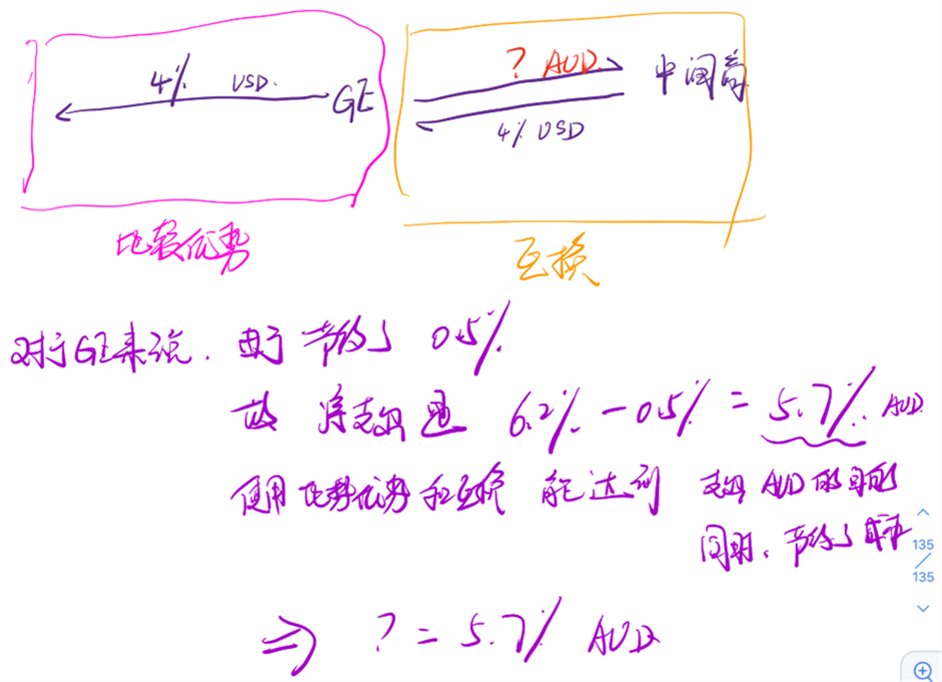 ? AUD
4% USD. GE 中间商
4% USD
比较优势
互换
对于GE来说. 由于 节约了 0.5%
故 净支出是 6.2% - 0.5% = 5.7% AUD
使用比势优势和互换 能达到 支出 AUD 的目的
同时、节约了成本
135
135
⇒ ? = 5.7% AUD